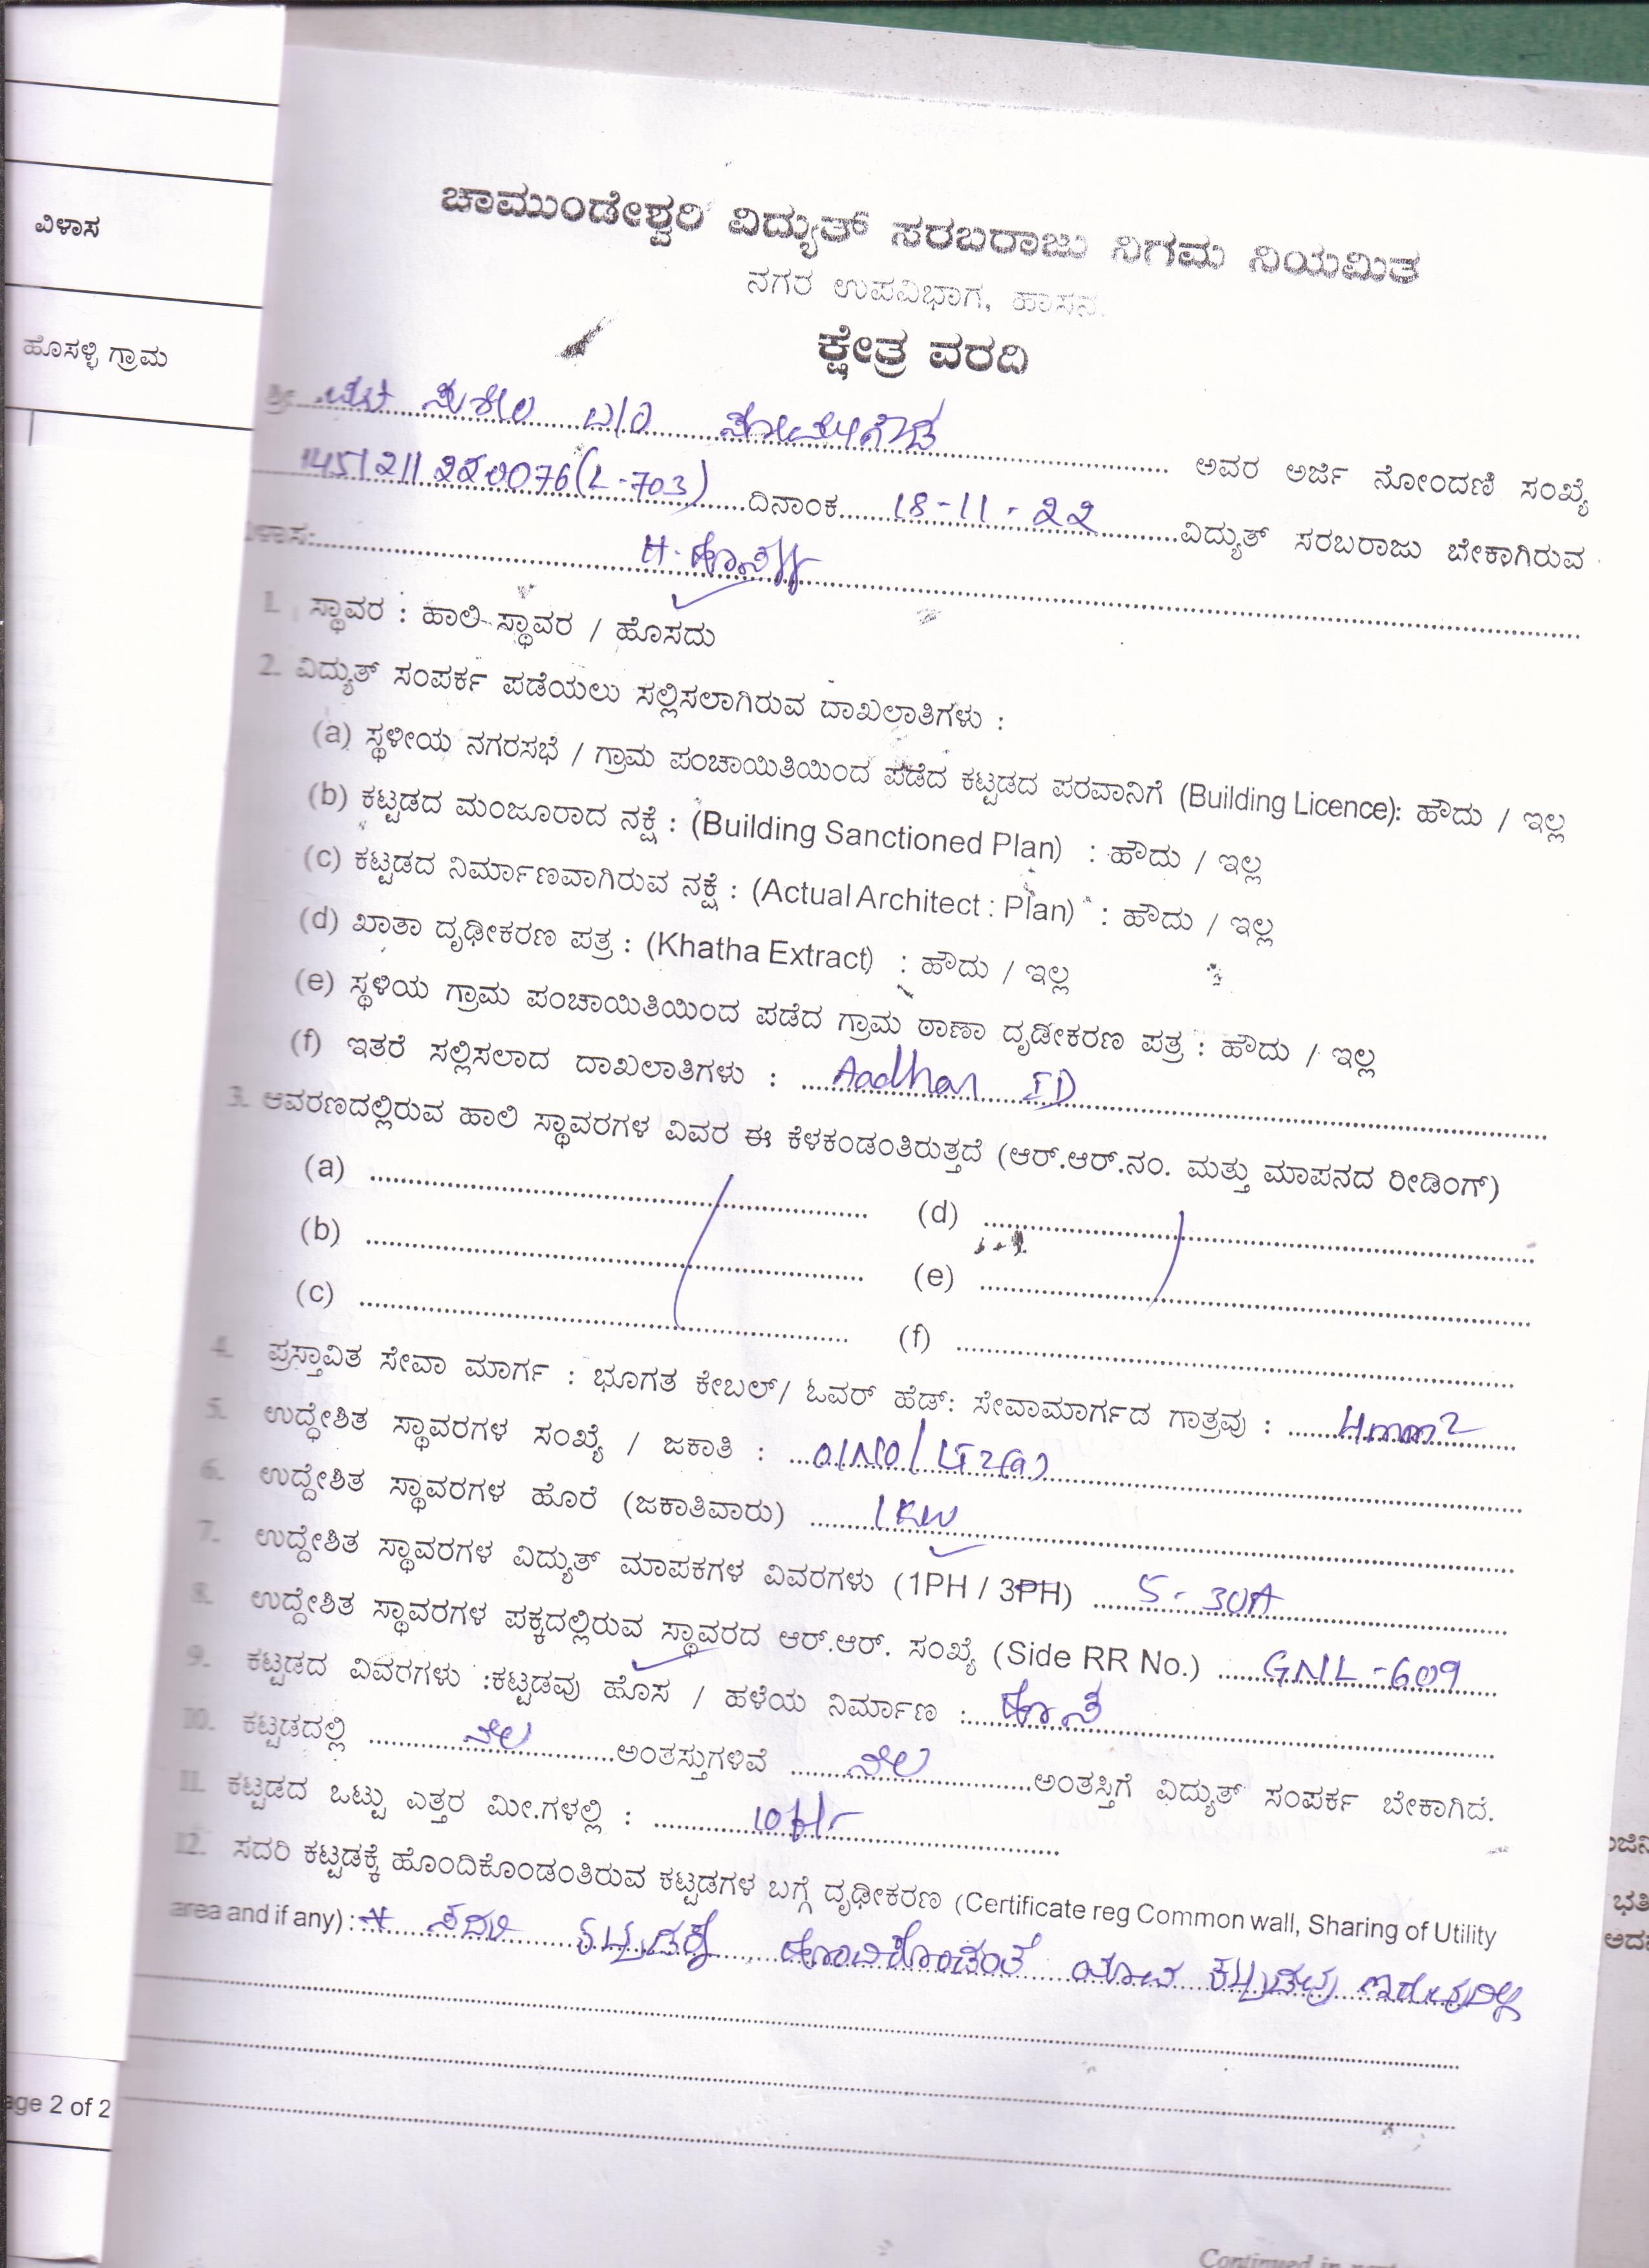 ವಿಳಾಸ
ಹೊಸಳ್ಳಿ ಗ್ರಾಮ
ಚಾಮುಂಡೇಶ್ವರಿ ವಿದ್ಯುತ್ ಸರಬರಾಜು ನಿಗಮ ನಿಯಮಿತ
ನಗರ ಉಪವಿಭಾಗ, ಹಾಸನ.
ಕ್ಷೇತ್ರ ವರದಿ
ಶ್ರೀ ಅವರ ಅರ್ಜಿ ನೋಂದಣಿ ಸಂಖ್ಯೆ
1451211220076(L-703) ದಿನಾಂಕ 18-11-22 ವಿದ್ಯುತ್ ಸರಬರಾಜು ಬೇಕಾಗಿರುವ
ವಿಳಾಸ:
1. ಸ್ಥಾವರ : ಹಾಲಿ ಸ್ಥಾವರ / ಹೊಸದು
2. ವಿದ್ಯುತ್ ಸಂಪರ್ಕ ಪಡೆಯಲು ಸಲ್ಲಿಸಲಾಗಿರುವ ದಾಖಲಾತಿಗಳು :
(a) ಸ್ಥಳೀಯ ನಗರಸಭೆ / ಗ್ರಾಮ ಪಂಚಾಯಿತಿಯಿಂದ ಪಡೆದ ಕಟ್ಟಡದ ಪರವಾನಿಗೆ (Building Licence): ಹೌದು / ಇಲ್ಲ
(b) ಕಟ್ಟಡದ ಮಂಜೂರಾದ ನಕ್ಷೆ : (Building Sanctioned Plan) : ಹೌದು / ಇಲ್ಲ
(c) ಕಟ್ಟಡದ ನಿರ್ಮಾಣವಾಗಿರುವ ನಕ್ಷೆ : (Actual Architect : Plan) : ಹೌದು / ಇಲ್ಲ
(d) ಖಾತಾ ದೃಢೀಕರಣ ಪತ್ರ : (Khatha Extract) : ಹೌದು / ಇಲ್ಲ
(e) ಸ್ಥಳಿಯ ಗ್ರಾಮ ಪಂಚಾಯಿತಿಯಿಂದ ಪಡೆದ ಗ್ರಾಮ ಠಾಣಾ ದೃಡೀಕರಣ ಪತ್ರ : ಹೌದು / ಇಲ್ಲ
(f) ಇತರೆ ಸಲ್ಲಿಸಲಾದ ದಾಖಲಾತಿಗಳು : Aadhar ID
3. ಆವರಣದಲ್ಲಿರುವ ಹಾಲಿ ಸ್ಥಾವರಗಳ ವಿವರ ಈ ಕೆಳಕಂಡಂತಿರುತ್ತದೆ (ಆರ್.ಆರ್.ನಂ. ಮತ್ತು ಮಾಪನದ ರೀಡಿಂಗ್)
(a) (d)
(b) (e)
(c) (f)
4. ಪ್ರಸ್ತಾವಿತ ಸೇವಾ ಮಾರ್ಗ : ಭೂಗತ ಕೇಬಲ್/ ಓವರ್ ಹೆಡ್: ಸೇವಾಮಾರ್ಗದ ಗಾತ್ರವು : 4mm2
5. ಉದ್ಧೇಶಿತ ಸ್ಥಾವರಗಳ ಸಂಖ್ಯೆ / ಜಕಾತಿ : 01NO/ LT2(a)
6. ಉದ್ದೇಶಿತ ಸ್ಥಾವರಗಳ ಹೊರೆ (ಜಕಾತಿವಾರು) 1KW
7. ಉದ್ದೇಶಿತ ಸ್ಥಾವರಗಳ ವಿದ್ಯುತ್ ಮಾಪಕಗಳ ವಿವರಗಳು (1PH / 3PH) 5-30A
8. ಉದ್ದೇಶಿತ ಸ್ಥಾವರಗಳ ಪಕ್ಕದಲ್ಲಿರುವ ಸ್ಥಾವರದ ಆರ್.ಆರ್. ಸಂಖ್ಯೆ (Side RR No.) GNL-609
9. ಕಟ್ಟಡದ ವಿವರಗಳು :ಕಟ್ಟಡವು ಹೊಸ / ಹಳೆಯ ನಿರ್ಮಾಣ : ಹೊಸ
10. ಕಟ್ಟಡದಲ್ಲಿ ನೆಲ ಅಂತಸ್ತುಗಳಿವೆ ನೆಲ ಅಂತಸ್ತಿಗೆ ವಿದ್ಯುತ್ ಸಂಪರ್ಕ ಬೇಕಾಗಿದೆ.
11. ಕಟ್ಟಡದ ಒಟ್ಟು ಎತ್ತರ ಮೀ.ಗಳಲ್ಲಿ : 10ft
12. ಸದರಿ ಕಟ್ಟಡಕ್ಕೆ ಹೊಂದಿಕೊಂಡಂತಿರುವ ಕಟ್ಟಡಗಳ ಬಗ್ಗೆ ದೃಢೀಕರಣ (Certificate reg Common wall, Sharing of Utility
area and if any) : ಸದರಿ ಕಟ್ಟಡಕ್ಕೆ ಹೊಂದಿಕೊಂಡಂತೆ ಯಾವ ಕಟ್ಟಡವು ಇರುವುದಿಲ್ಲ
age 2 of 2
Continued in